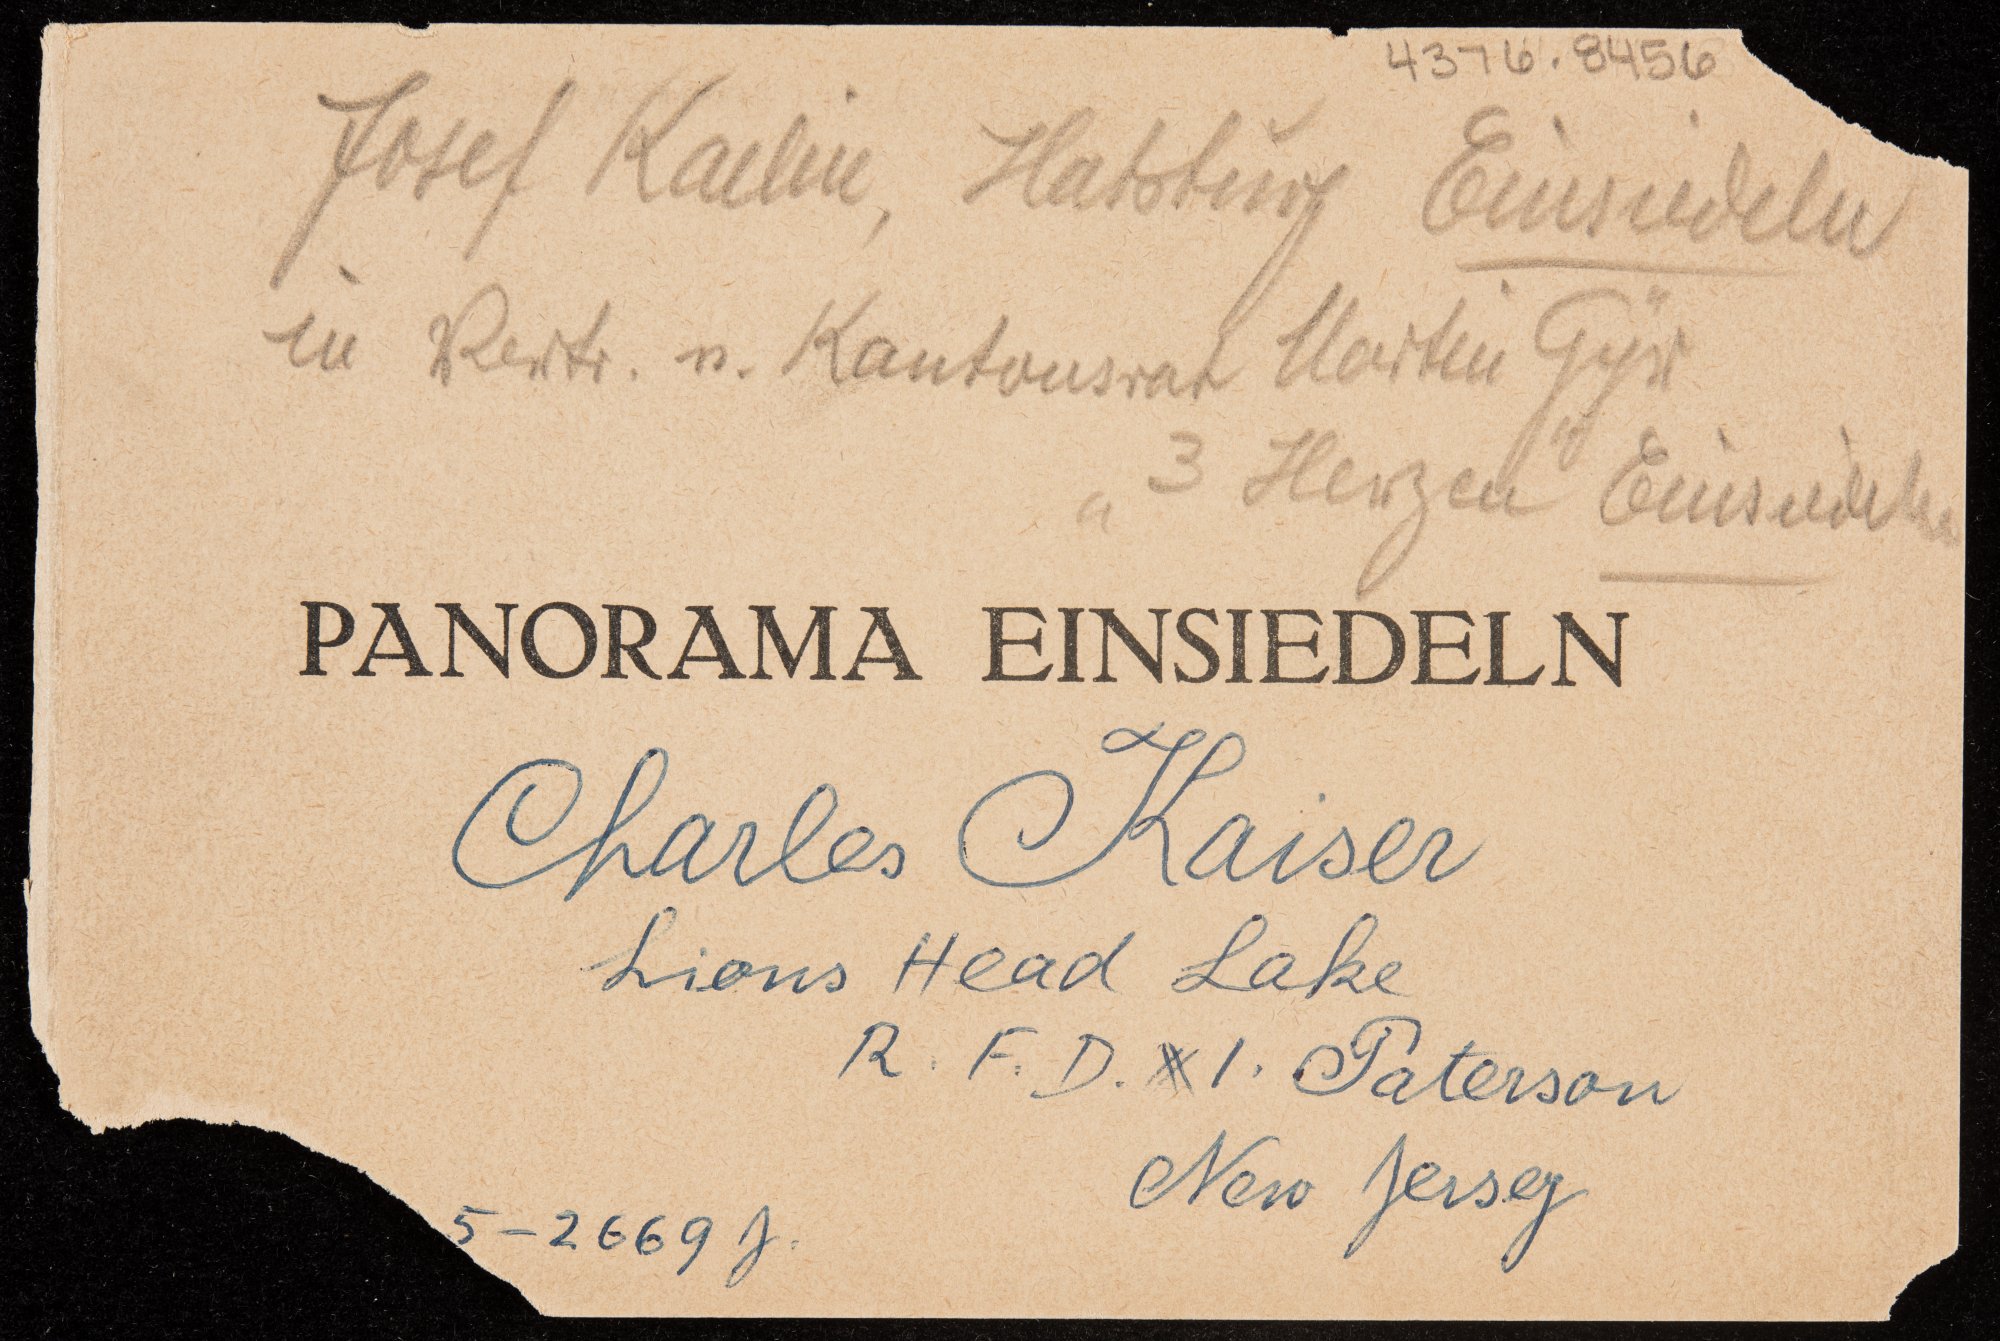 4376.8456
Josef Kaelin, Einsiedeln
in Vertr. v. Kantonsrat Martin Gyr
„3 Herzen" Einsiedeln
PANORAMA EINSIEDELN
Charles Kaiser
Lions Head Lake
R. F. D. 1. Paterson
New Jersey
5-2669 J.